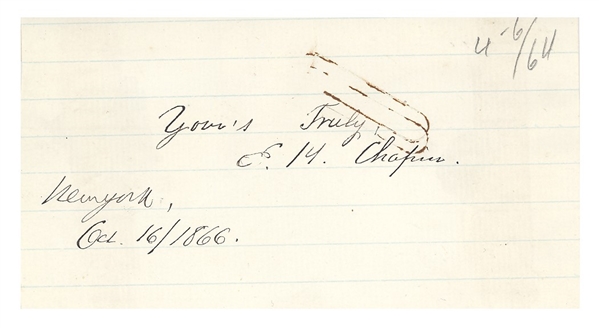 4-6/64
Your's Truly,
E. H. Chapin.
New York,
Oct. 16/1866.